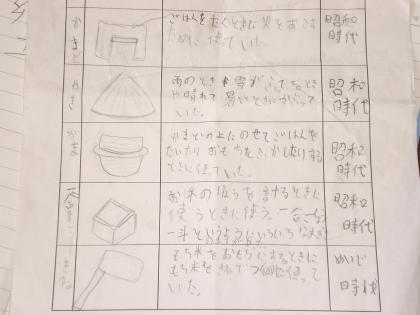 かまど
ごはんをたくときに火をおこす
ために使っていた。
昭和
時代
かさ
雨のときや雪がふってるとき
や晴れて暑いときにかぶって
いた。
昭和
時代
かま
かまどの上にのせてごはんを
たいたりおもちを
するときに使っていた。
昭和
時代
お米のりょうを計るときに
使うときに使う。一合
一斗というようにいろいろな
昭和
時代
きね
もち米をおもちにするときに
もち米をきねでつくのに使って
いた。
めいじ
時代